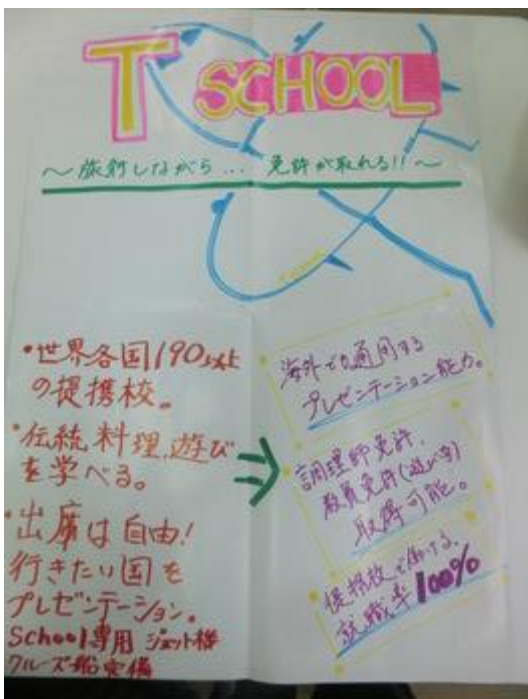 T SCHOOL
〜旅行しながら... 免許が取れる!!〜
・世界各国190以上
の提携校。
・伝統料理、遊び
を学べる。
・出席は自由!
行きたい国を
プレゼンテーション。
School専用 ジェット機
クルーズ船完備
海外でも通用する
プレゼンテーション能力。
調理師免許、
教員免許(遊び学)
取得可能。
提携校で働ける。
就職率100%